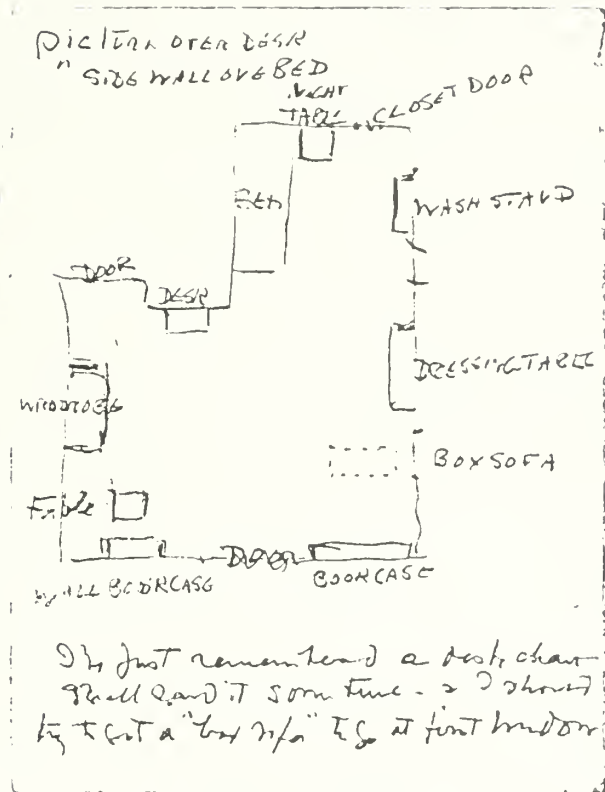 PICTURE OVER DESK
" SIDE WALL OVE BED
NIGHT
TABLE
CLOSET DOOR
BED
WASH STAND
DOOR
DESK
DRESSING TABLE
WARDROBE
BOX SOFA
Table
DOOR
WALL BOOKCASE
BOOKCASE
I've just remembered a desk chair
Shall it some time - & I should
try to get a "box sofa" to go at front window